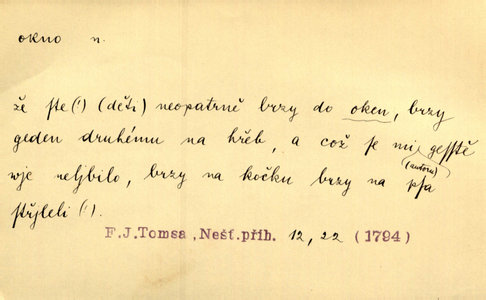 okno n.
že ste(!) (děti) neopatrně brzy do oken, brzy
geden druhému na hřeb, a což je mi gesstě
(autoru)
wje neljbilo, brzy na kočku brzy na psa
střjleli (!).
F.J.Tomsa, Nešť.příh. 12, 22 (1794)